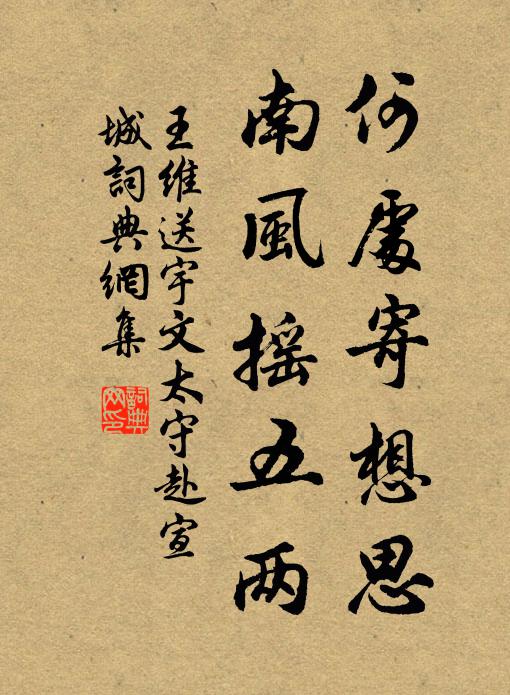 何處寄想思
南風摇五两
王維送宇文太守赴宣
城詞典網集
詞典
网印